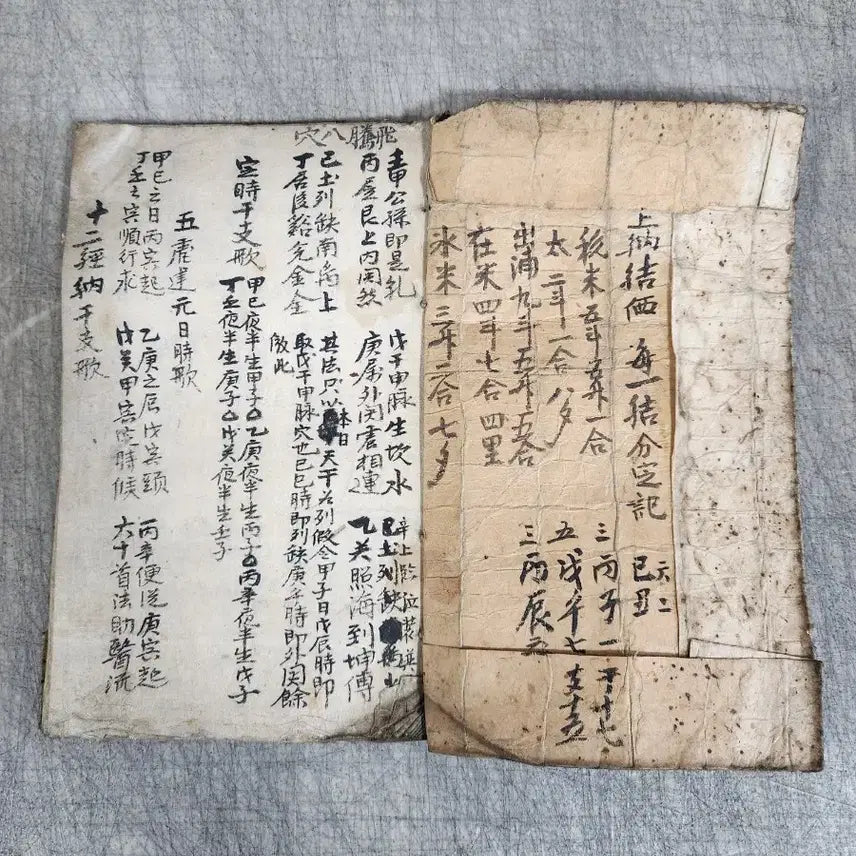 上納結価 每一結分定記 己丑 六二
税米五斗五升一合
太二斗一合八夕
出浦九斗五升五合
在米四斗七合四里
氷米三斗二合七夕
三丙子一 干十七
五戊午七 支十五
三丙辰五
飛騰八穴
壬甲公孫即是乾 戊干申脉生坎水 辛上臨泣装巽
丙屋艮上内関然 庚属外関震相連 乙癸照海到坤傳
己土列缺南离上 其法只以本日天干為列假令甲子日戊辰時即
丁居後谿兌金全 取戊干申脉穴也己巳時即列缺庚午時即外関餘
倣此
定時干支歌 甲己夜半生甲子○乙庚夜半生丙子○丙辛夜半生戊子
丁壬夜半生庚子○戊癸夜半生壬子
五虎建元日時歌
甲己之日丙寅起 乙庚之辰戊寅頭 丙辛便從庚寅起
丁壬壬寅順行求 戊癸甲寅定時候 六十首法助醫流
十二經納干支歌